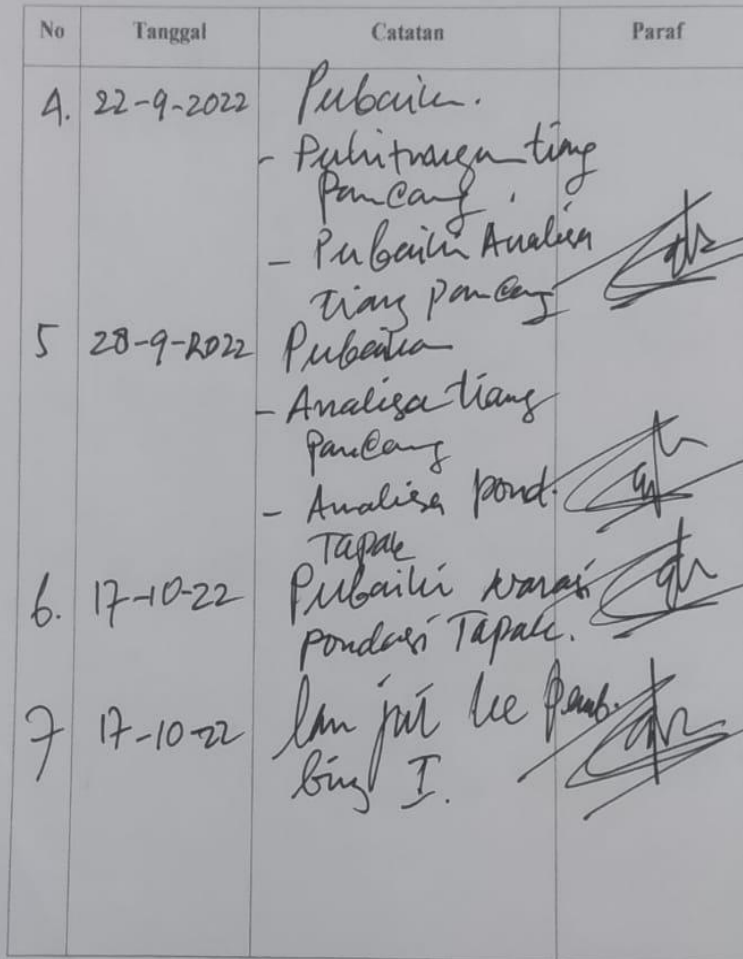 No Tanggal Catatan Paraf
4. 22-9-2022 Perbaiki.
- Perhitungan tiang
Pancang.
- Perbaiki Analisa
tiang pancang
5 28-9-2022 Perbaiki
- Analisa tiang
Pancang
- Analisa pond.
Tapak
6. 17-10-22 Perbaiki
pondasi Tapak.
7 17-10-22 lanjut ke Pemb.
bing I.